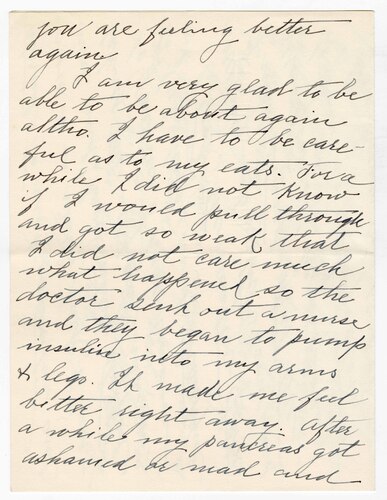 you are feeling better
again.
I am very glad to be
able to be about again
altho. I have to be care-
ful as to my eats. For a
while I did not know
if I would pull through
and got so weak that
I did not care much
what happened so the
doctor sent out a nurse
and they began to pump
insulin into my arms
& legs. It made me feel
better right away. After
a while my pancreas got
ashamed or mad and